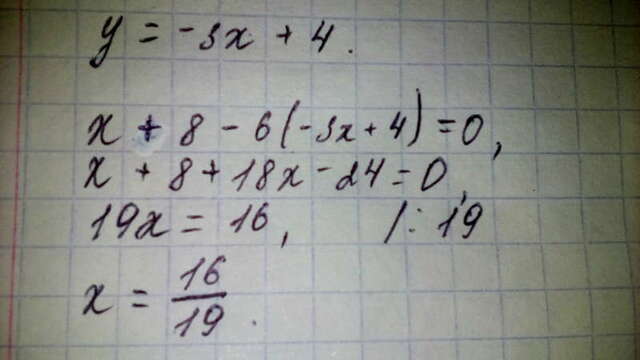 y = -3x + 4.
x + 8 - 6(-3x + 4) = 0,
x + 8 + 18x - 24 = 0,
19x = 16, /: 19
x = 16/19.